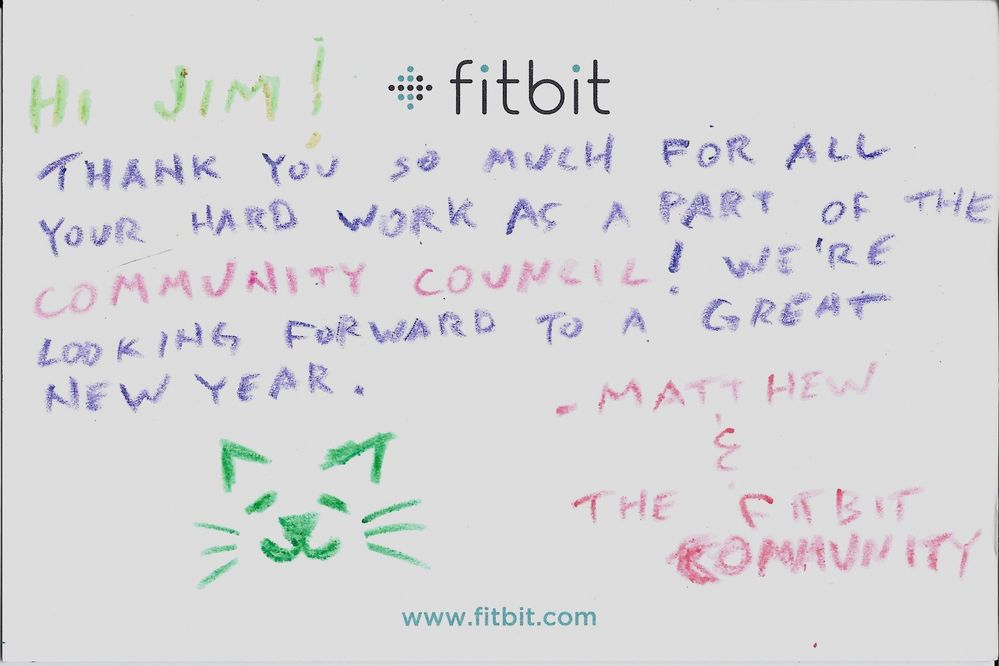 HI JIM!
fitbit
THANK YOU SO MUCH FOR ALL
YOUR HARD WORK AS A PART OF THE
COMMUNITY COUNCIL! WE'RE
LOOKING FORWARD TO A GREAT
NEW YEAR.
- MATTHEW
&
THE FITBIT
COMMUNITY
www.fitbit.com